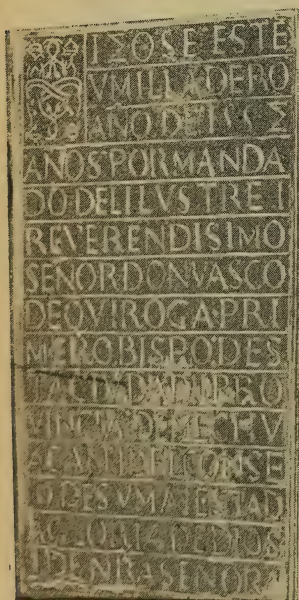 IZOSE ESTE
VMILLADERO
AÑO DE
AÑOS POR MANDA
DO DEL ILVSTRE I
REVERENDISIMO
SEÑOR DON VASCO
DE QVIROGA·PRI
MERO·BISPO·DES
TA CIVDAD I PRO
VINCIA DE MECHV
ACAN I DEL CONSE
IO DE SV MAIESTAD
A GLORIA DE DIOS
I DE NRA SEÑORA